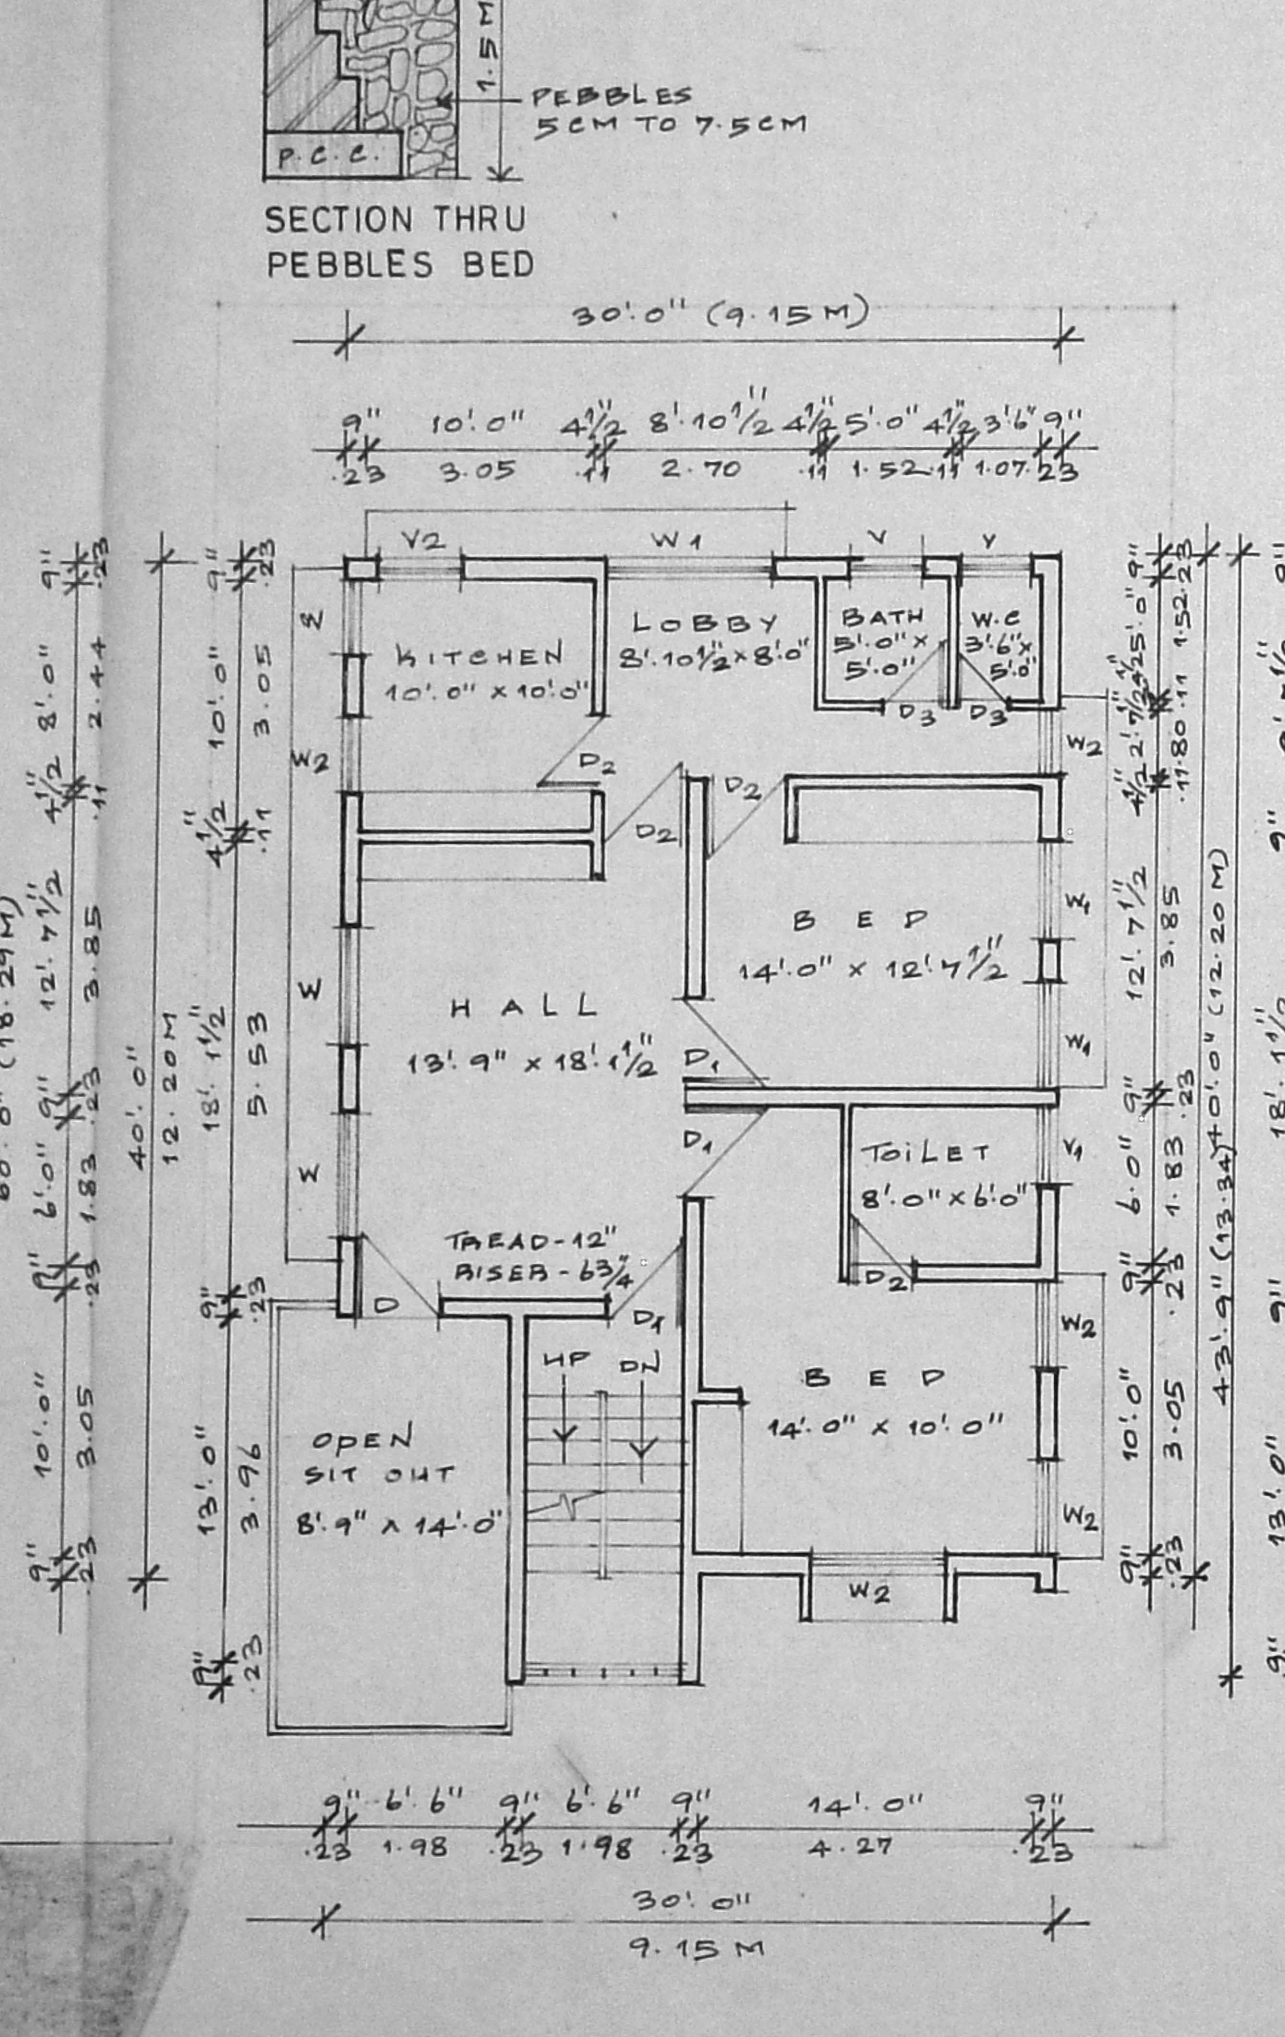 1.5M
PEBBLES
5CM TO 7.5CM
P.C.C.
SECTION THRU
PEBBLES BED
30'.0" (9.15M)
9" 10'.0" 4½" 8'.10½" 4½" 5'.0" 4½" 3'.6" 9"
.23 3.05 .11 2.70 .11 1.52 .11 1.07 .23
V2 W1 V V
KITCHEN
10'.0" x 10'.0"
LOBBY
8'.10½" x 8'.0"
BATH
5'.0" x
5'.0"
W.C
3'.6" x
5'.0"
D3 D3
W2
D2
W2
D2
D2
BED
14'.0" x 12'.7½"
W1
W1
HALL
13'.9" x 18'.1½"
W
W
D1
D1
TOILET
8'.0" x 6'.0"
V1
D2
TREAD-12"
RISER-6¾"
D
D1
UP DN
OPEN
SIT OUT
8'.9" x 14'.0"
BED
14'.0" x 10'.0"
W2
W2
W2
9" 8'.0" 4½" 12'.7½" 9" 6'.0" 9" 10'.0" 9"
.23 2.44 .11 3.85 .23 1.83 .23 3.05 .23
40'.0"
12.20M
9" 10'.0" 4½" 18'.1½" 9" 13'.0" 9"
.23 3.05 .11 5.53 .23 3.96 .23
9" 5'.0" 4½" 2'.7½" 4½" 12'.7½" 9" 6'.0" 9" 10'.0" 9"
.23 1.52 .11 .80 .11 3.85 .23 1.83 .23 3.05 .23
40'.0" (12.20M)
43'.9" (13.34)
(18.29M)
9"
9"
18'.1½"
9"
13'.0"
9"
9" 6'.6" 9" 6'.6" 9" 14'.0" 9"
.23 1.98 .23 1.98 .23 4.27 .23
30'.0"
9.15M